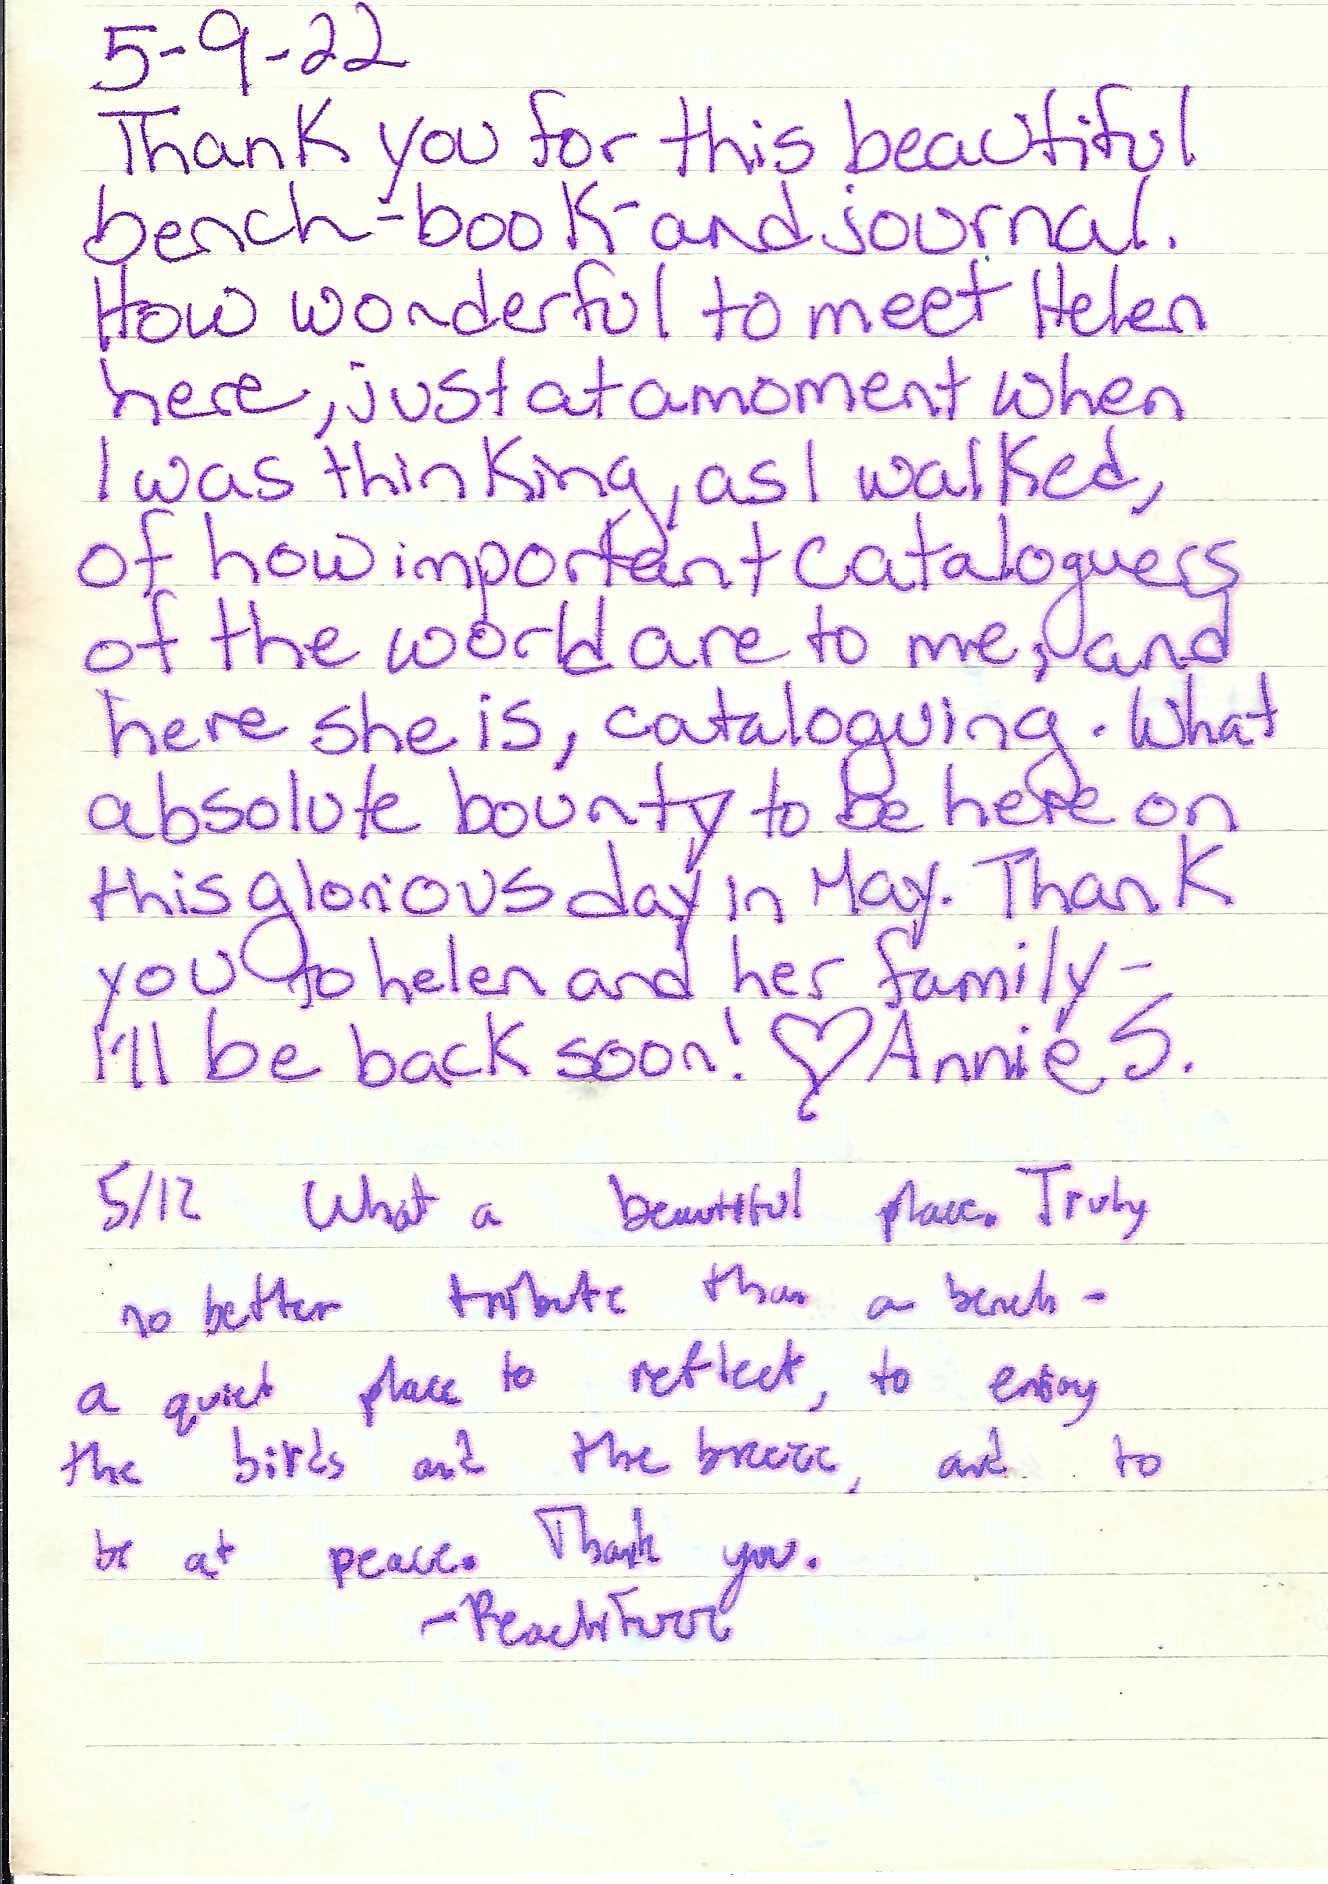 5-9-22
Thank you for this beautiful
bench-book-and journal.
How wonderful to meet Helen
here, just at a moment when
I was thinking, as I walked,
of how important cataloguers
of the world are to me, and
here she is, cataloguing. What
absolute bounty to be here on
this glorious day in May. Thank
you to helen and her family-
I'll be back soon! ♡ Annie S.
5/12 What a beautiful place. Truly
no better tribute than a bench-
a quiet place to reflect, to enjoy
the birds and the breeze, and to
be at peace. Thank you.